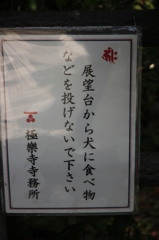 展望台から犬に食べ物
などを投げないで下さい
極樂寺寺務所